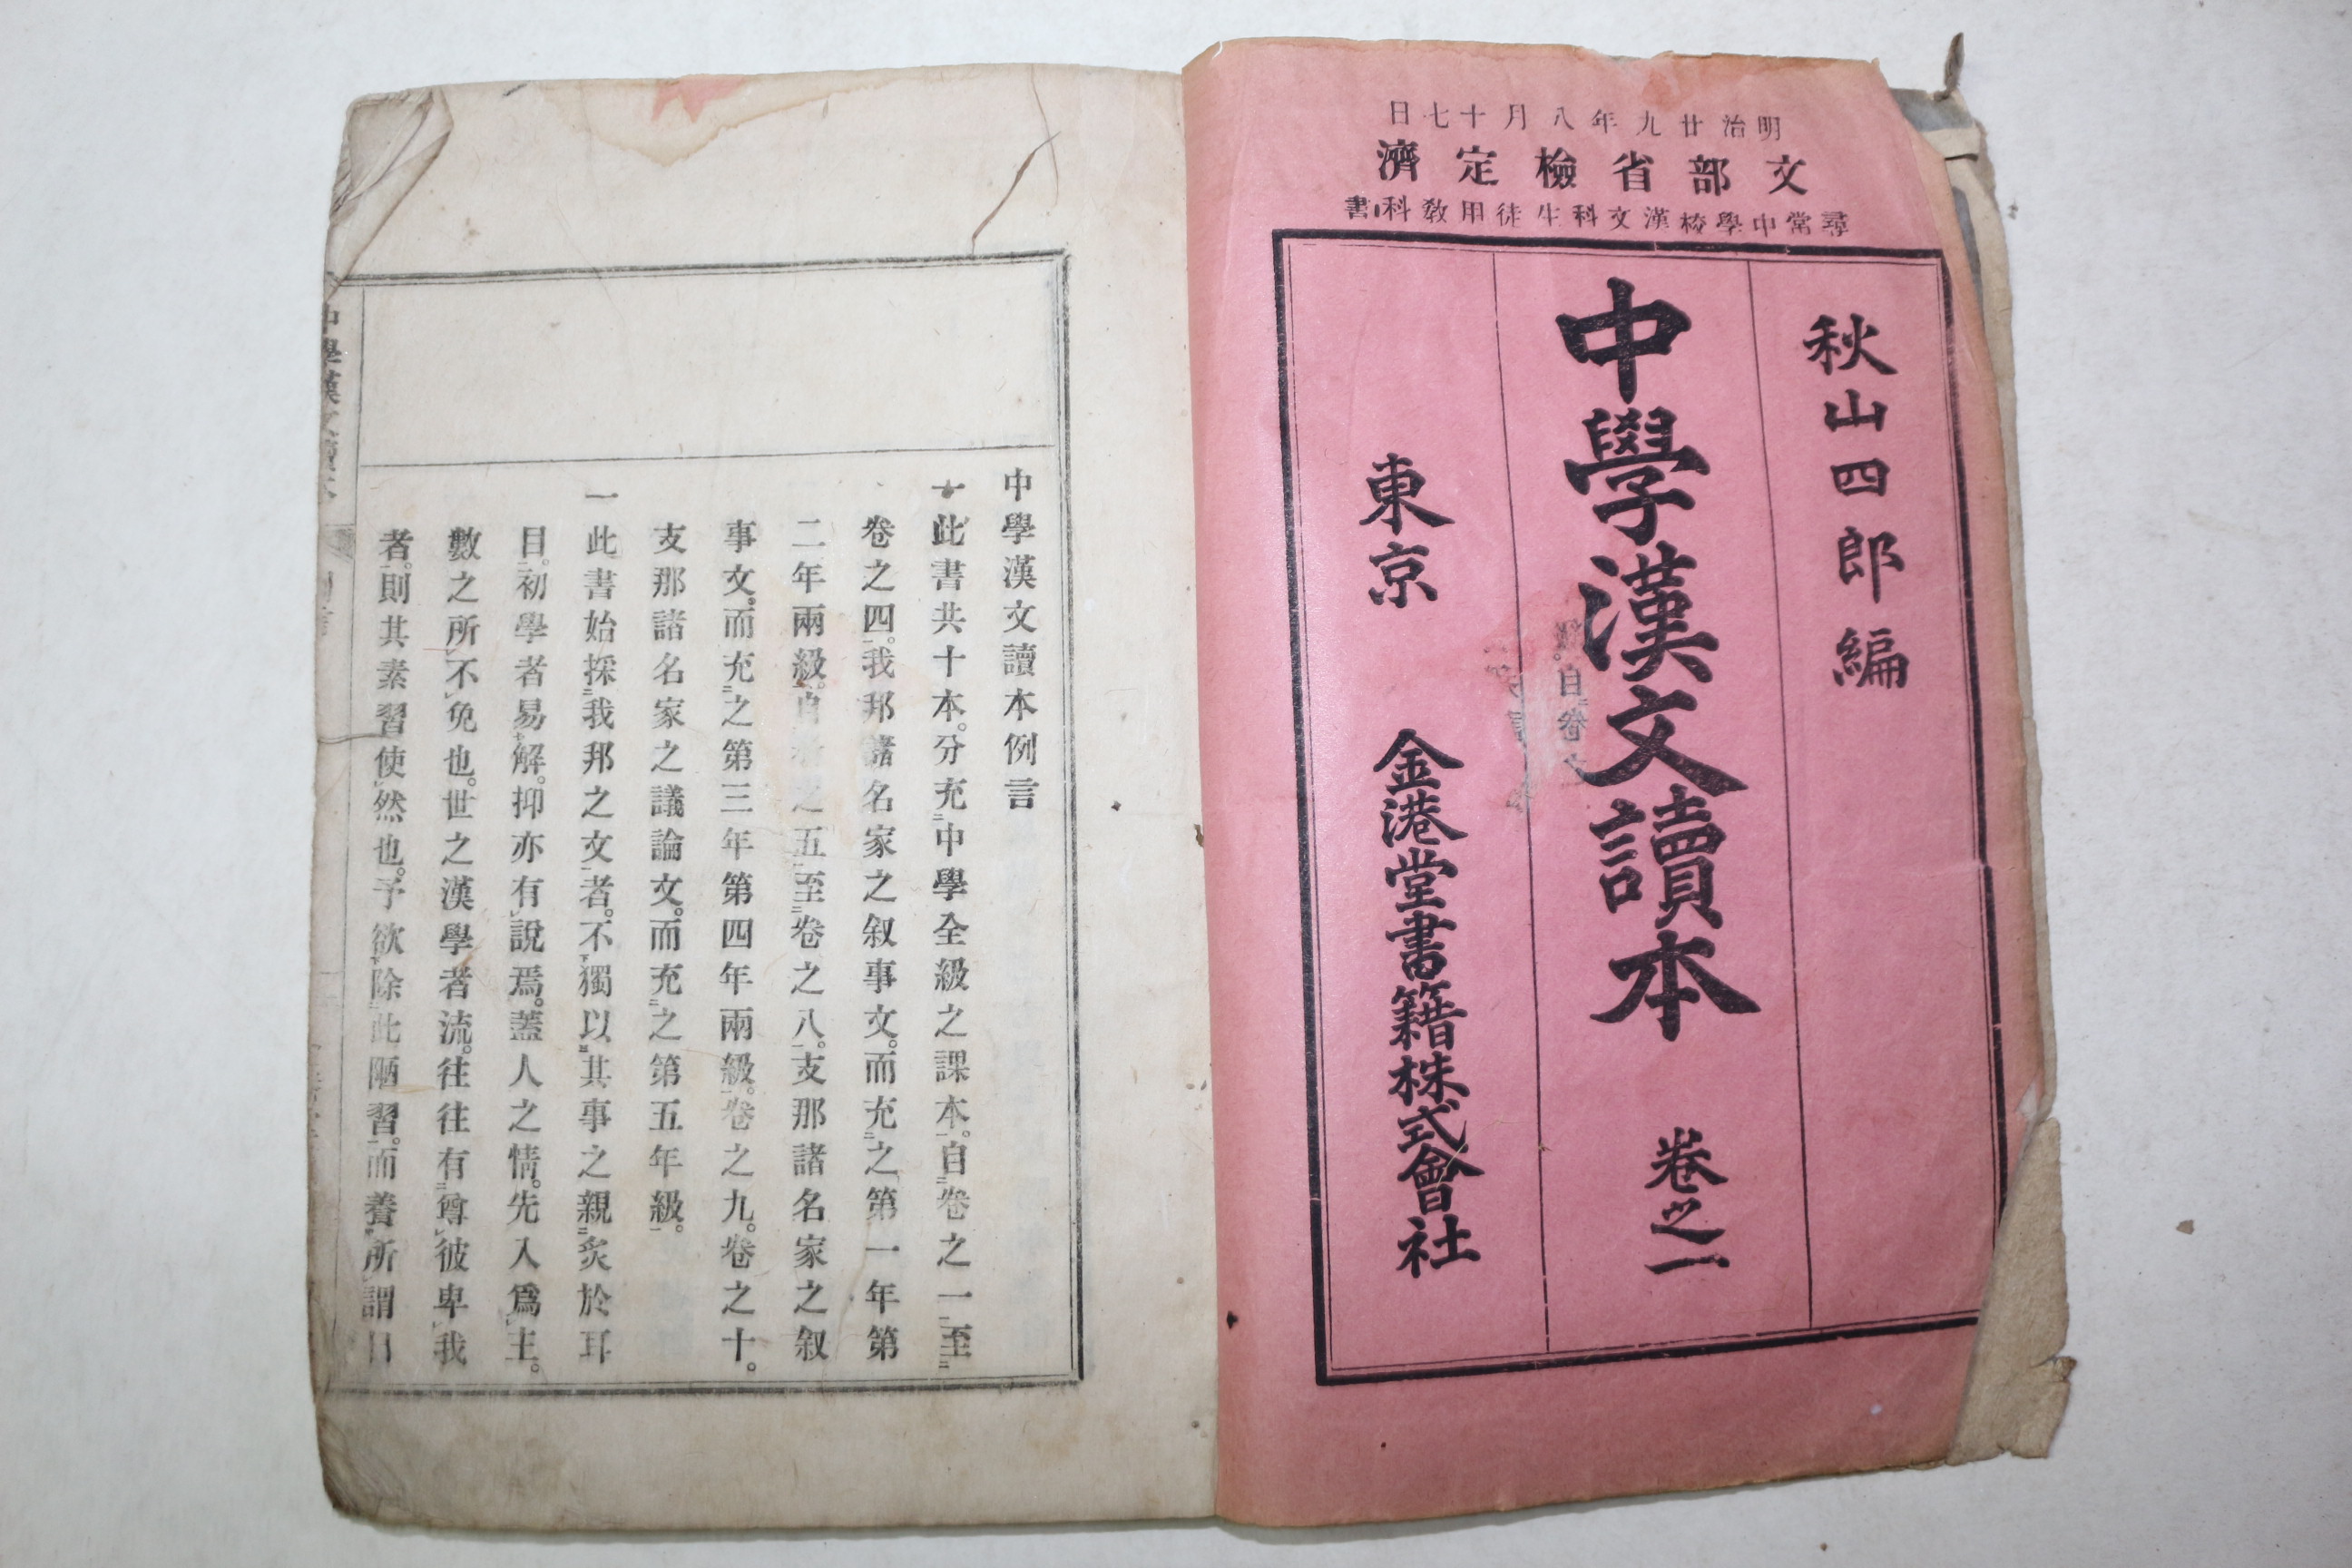 明治廿九年八月十七日
文部省檢定濟
尋常中學校漢文科生徒用教科書
秋山四郎編
中學漢文讀本 卷之一
東京 金港堂書籍株式會社
中學漢文讀本例言
一此書共十本。分充中學全級之課本。自卷之一至
卷之四。我邦諸名家之叙事文。而充之第一年第
二年兩級。自卷之五至卷之八。支那諸名家之叙
事文。而充之第三年第四年兩級。卷之九。卷之十。
支那諸名家之議論文。而充之第五年級。
一此書始採我邦之文者。不獨以其事之親炙於耳
目。初學者易解。抑亦有說焉。蓋人之情。先入爲主。
數之所不免也。世之漢學者流。往往有尊彼卑我
者。則其素習使然也。予欲除此陋習。而養所謂日
中學漢文讀本